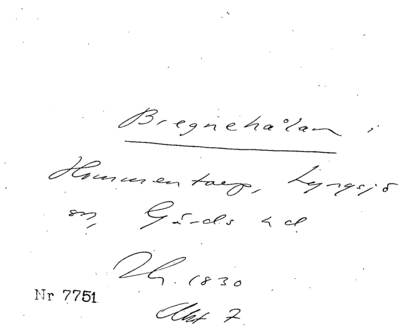 Bregnehålan i
Hommentorp, Lyngsjö
sn, Gärds hd
1830
Nr 7751
Akt 7